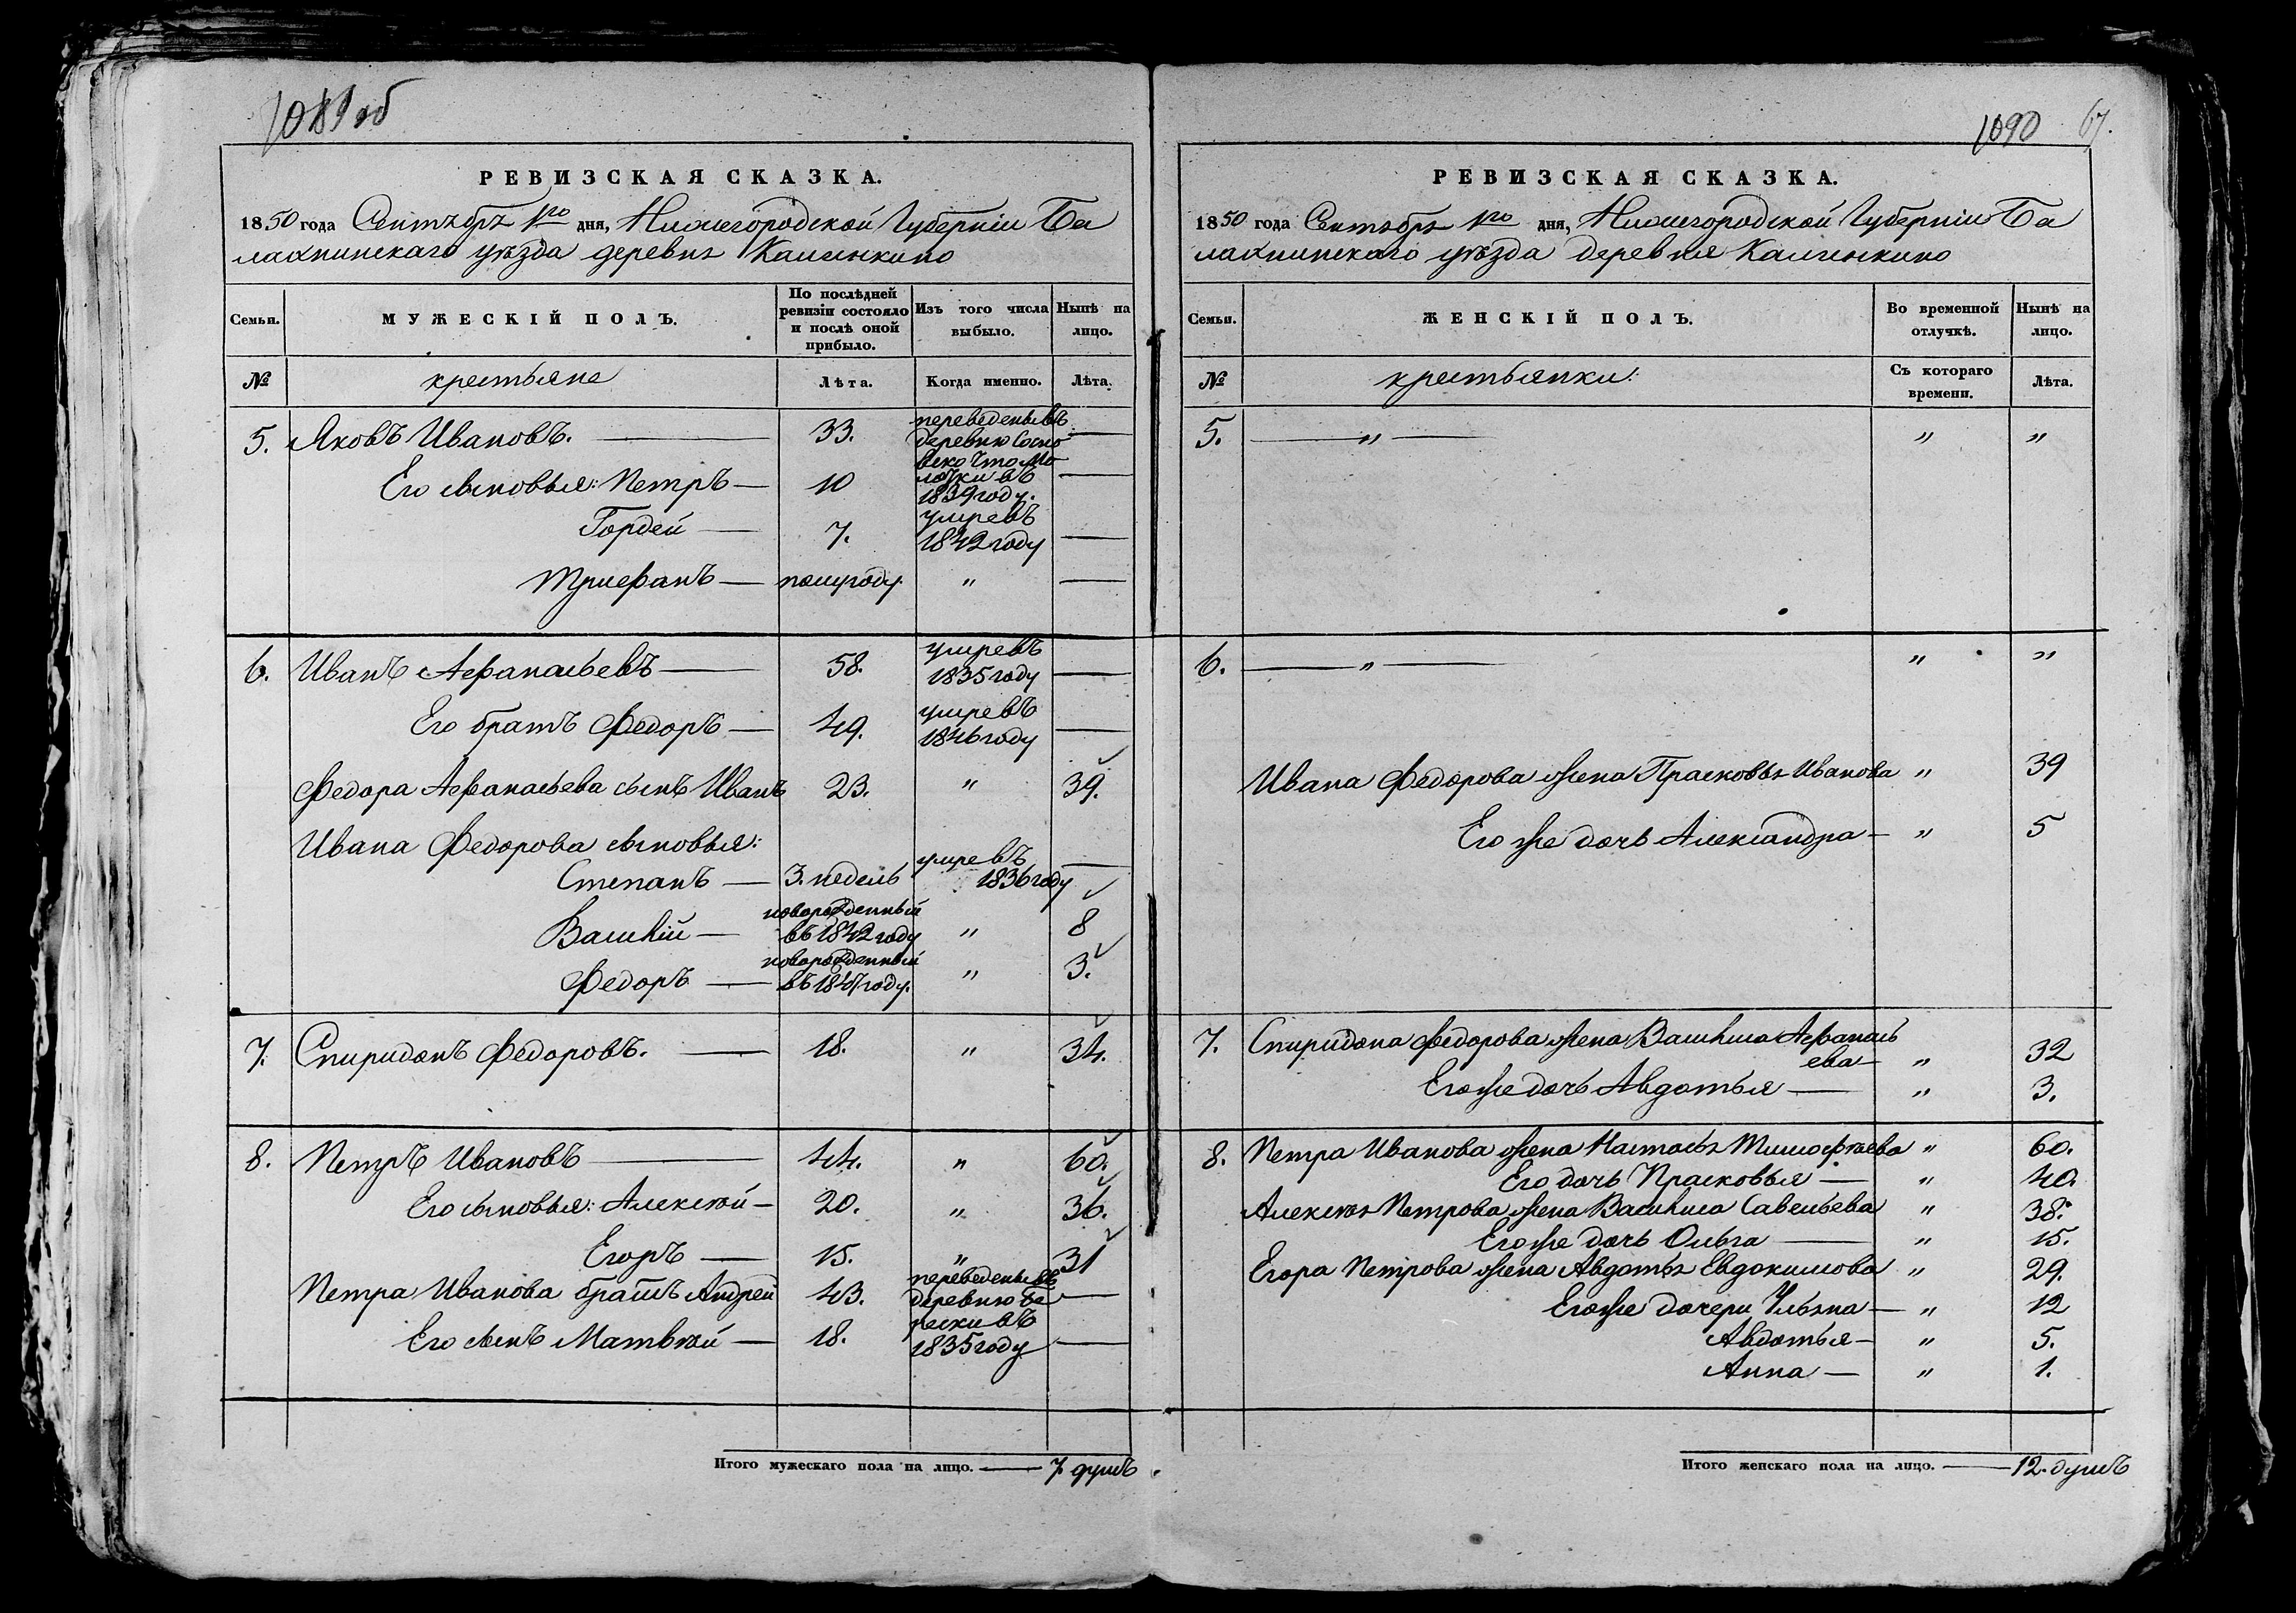 1089 об
РЕВИЗСКАЯ СКАЗКА.
1850 года Сентября 1го дня, Нижегородской Губерніи Ба
лахнинскаго уѣзда деревнѣ Калинкино
Семьи. МУЖЕСКІЙ ПОЛЪ. По послѣдней ревизіи состояло и послѣ оной прибыло. Изъ того числа выбыло. Нынѣ на лицо.
№ крестьяне Лѣта. Когда именно. Лѣта.
5. Яковъ Ивановъ. — 33. переведены въ деревню —
Его сыновья: Петръ — 10 лочки въ 1839 году. —
Гордей — 7. умре въ 1842 году —
Трифанъ — полугоду. " —
6. Иванъ Афанасьевъ — 58. умре въ 1835 году —
Его братъ Федоръ — 49. умре въ 1846 году —
Федора Афанасьева сынъ Иванъ 23. " 39.
Ивана Федорова сыновья:
Степанъ — 3. недель умре въ 1836 году —
Василій — новорожденный въ 1842 году " 8
Федоръ — новорожденный въ 1847 году. " 3.
7. Спиридонъ Федоровъ. — 18. " 34.
8. Петръ Ивановъ — 44. " 60.
Его сыновья: Алексѣй — 20. " 36.
Егоръ — 15. " 31
Петра Иванова братъ Андрей 43. переведены въ деревню Бе —
Его сынъ Матвѣй — 18. рески въ 1835 году —
Итого мужескаго пола на лицо. — 7. душъ
1090 67.
РЕВИЗСКАЯ СКАЗКА.
1850 года Сентября 1го дня, Нижегородской Губерніи Ба
лахнинскаго уѣзда деревня Калинкино
Семьи. ЖЕНСКІЙ ПОЛЪ. Во временной отлучкѣ. Нынѣ на лицо.
№ крестьянки: Съ котораго времени. Лѣта.
5. — " — " "
6. — " — " "
Ивана Федорова жена Прасковья Иванова " 39
Его же дочь Александра — " 5
7. Спиридона Федорова жена Василиса Афанась
ева — " 32
Его же дочь Авдотья — " 3.
8. Петра Иванова жена Настасья Тимофѣева " 60.
Его дочь Прасковья — " 40.
Алексѣя Петрова жена Василиса Савельева " 38.
Его же дочь Ольга — " 15.
Егора Петрова жена Авдотья Евдокимова " 29.
Его же дочери Ульяна — " 12
Авдотья — " 5.
Анна — " 1.
Итого женскаго пола на лицо. — 12. душъ